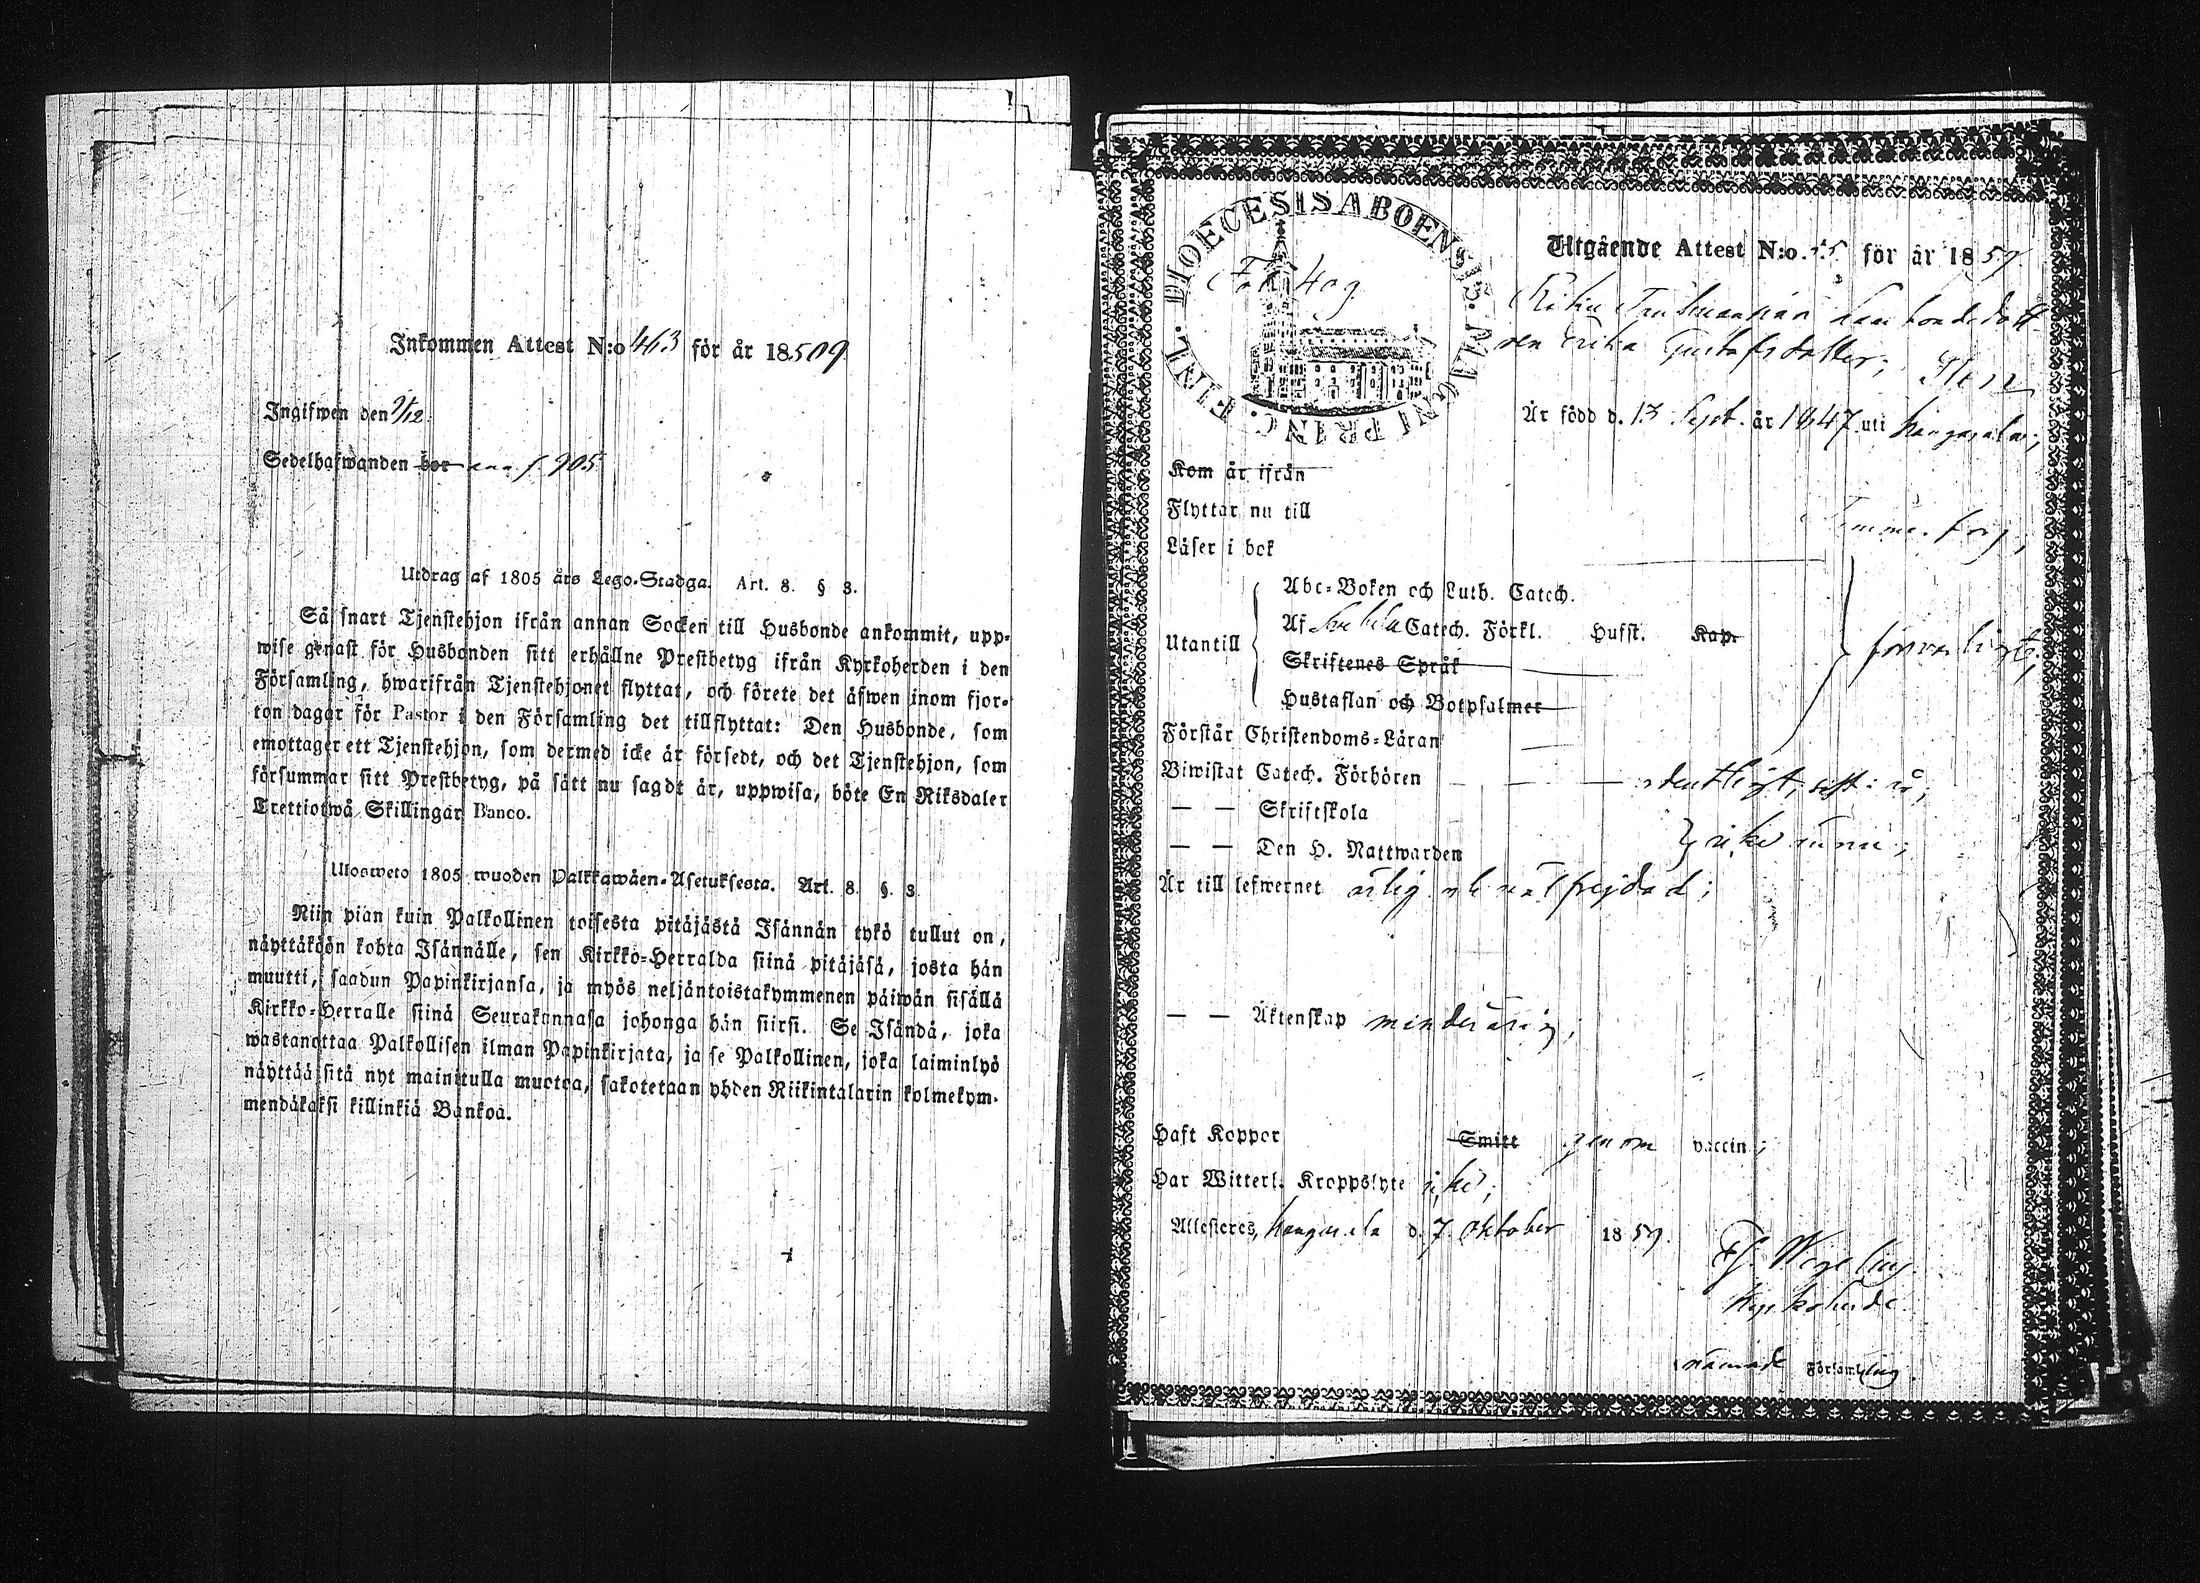 Inkommen Attest N:o 463 för år 1859
Ingifwen den 9/12.
Sedelhafwanden bor f. 905
Utdrag af 1805 års Lego-Stadga. Art. 8. § 3.
Så snart Tjenstehjon ifrån annan Socken till Husbonde ankommit, upp-
wise genast för Husbonden sitt erhållne Prestbetyg ifrån Kyrkoherden i den
Församling, hwarifrån Tjenstehjonet flyttat, och förete det äfwen inom fjor-
ton dagar för Pastor i den Församling det tillflyttat: Den Husbonde, som
emottager ett Tjenstehjon, som dermed icke är försedt, och det Tjenstehjon, som
försummar sitt Prestbetyg, på sätt nu sagdt är, uppwisa, böte En Riksdaler
Trettiotwå Skillingar Banco.
Ulosweto 1805 wuoden Palkkawäen-Asetuksesta. Art. 8. §. 3.
Niin pian kuin Palkollinen toisesta pitäjästä Isännän tykö tullut on,
näyttäköön kohta Isännälle, sen Kirkko-Herralda siinä pitäjäsä, josta hän
muutti, saadun Papinkirjansa, ja myös neljäntoistakymmenen päiwän sisällä
Kirkko-Herralle siinä Seurakunnasa johonga hän siirsi. Se Isändä, joka
wastanottaa Palkollisen ilman Papinkirjata, ja se Palkollinen, joka laiminlyö
näyttää sitä nyt mainitulla muotoa, sakotetaan yhden Riikintalarin kolmekym-
mendäkaksi killinkiä Bankoa.
DIOECESIS ABOENSIS. MAGNI PRINC. FINL.
Fol. 409
Utgående Attest N:o. 55 för år 1859.
bondedott-
ren Erika Gustafsdotter;
Är född d. 13 Sept. år 1847 uti Kangasala;
Kom år ifrån
Flyttar nu till Tammerfors;
Läser i bok
Abc-Boken och Luth. Catech.
Utantill Af Svebelii Catech. Förkl. Husst. Kap. försvarligt;
Skriftenes Språk
Hustaflan och Botpsalmer
Förstår Christendoms-Läran
Biwistat Catech. Förhören ordentligt,
— — Skriftskola
— — Den H. Nattwarden icke ännu;
Är till lefwernet ärlig och välfrejdad;
— — Äktenskap minderårig;
Haft Koppor Smitt genom vaccin;
Har Witterl. Kroppslyte icke;
Attesteres, Kangasala d. 7 Oktober 1859.
Kyrkoherde
nämnde Församling.